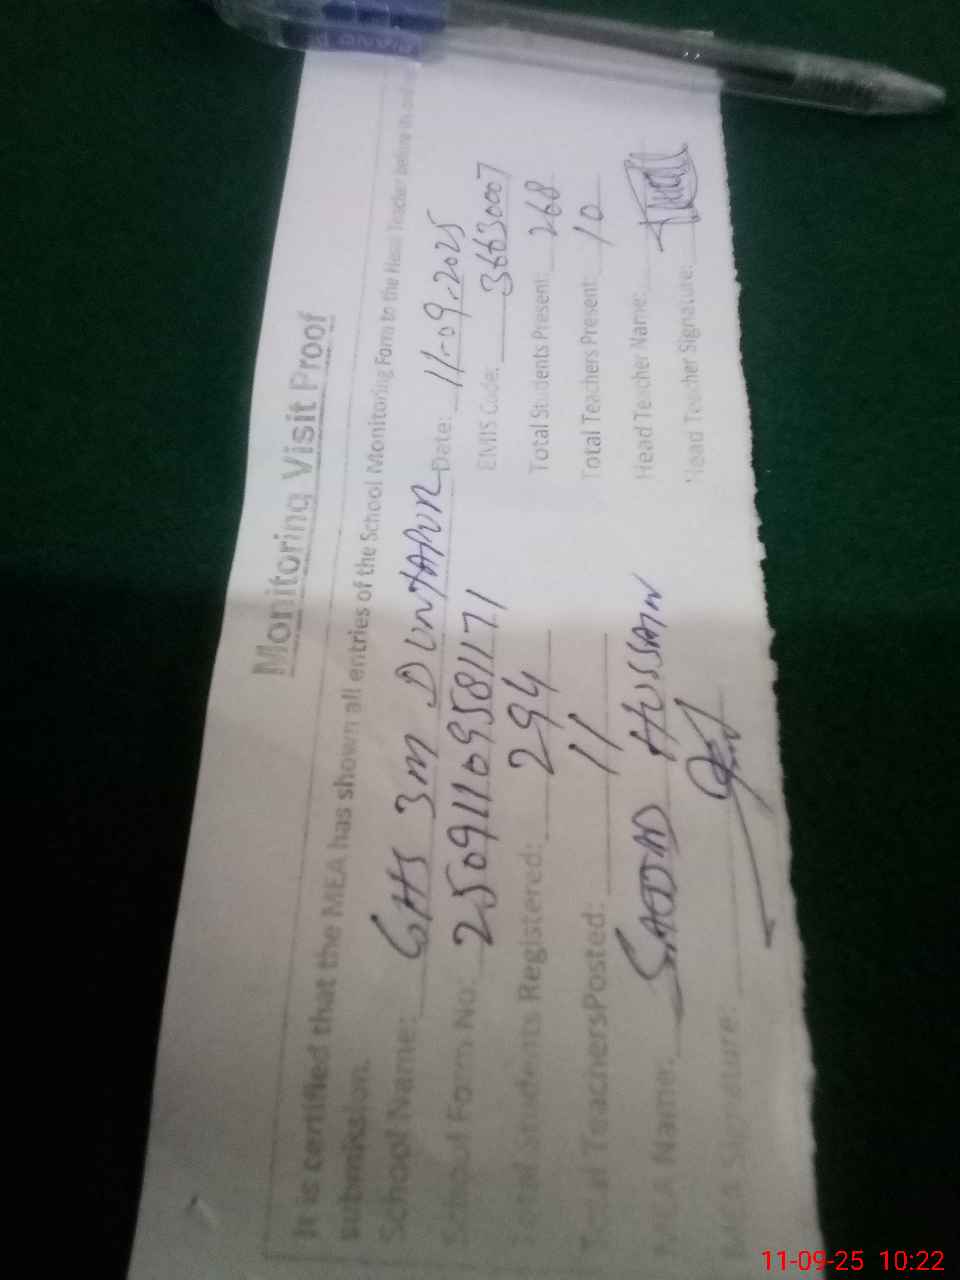 PIANO
Monitoring Visit Proof
It is certified that the MEA has shown all entries of the School Monitoring Form to the Head Teacher before its
submission.
School Name: GHS 3M DUNYAPUR Date: 11-09-2025
School Form No: 25091109581171 EMIS Code: 36630007
Total Students Registered: 294 Total Students Present: 268
Total TeachersPosted: 11 Total Teachers Present: 10
MEA Name: SAEED HUSSAIN Head Teacher Name:
MEA Signature: Head Teacher Signature:
11-09-25 10:22